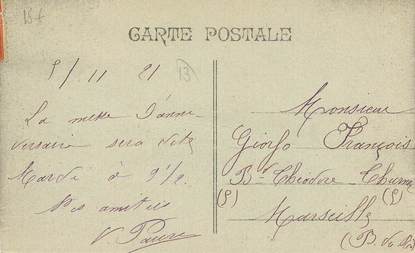 18 f
CARTE POSTALE
5/11 21
13
La messe d'anni-
versaire sera dite
Mardi à 9 h
Nos amitiés
Monsieur
François
Bd Théodore Thurner
(9)
Marseille
(B. du Rh.